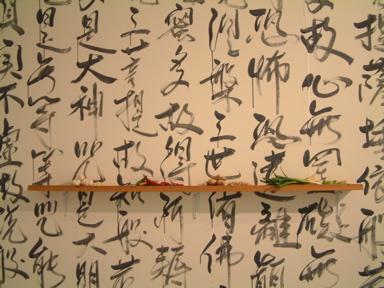 提薩埵依般
故心無罣礙無
恐怖遠離顛
涅槃三世諸佛
蜜多故得阿耨
三菩提故知般若
是大神咒是大明
是無等等咒能
真實不虛故說般